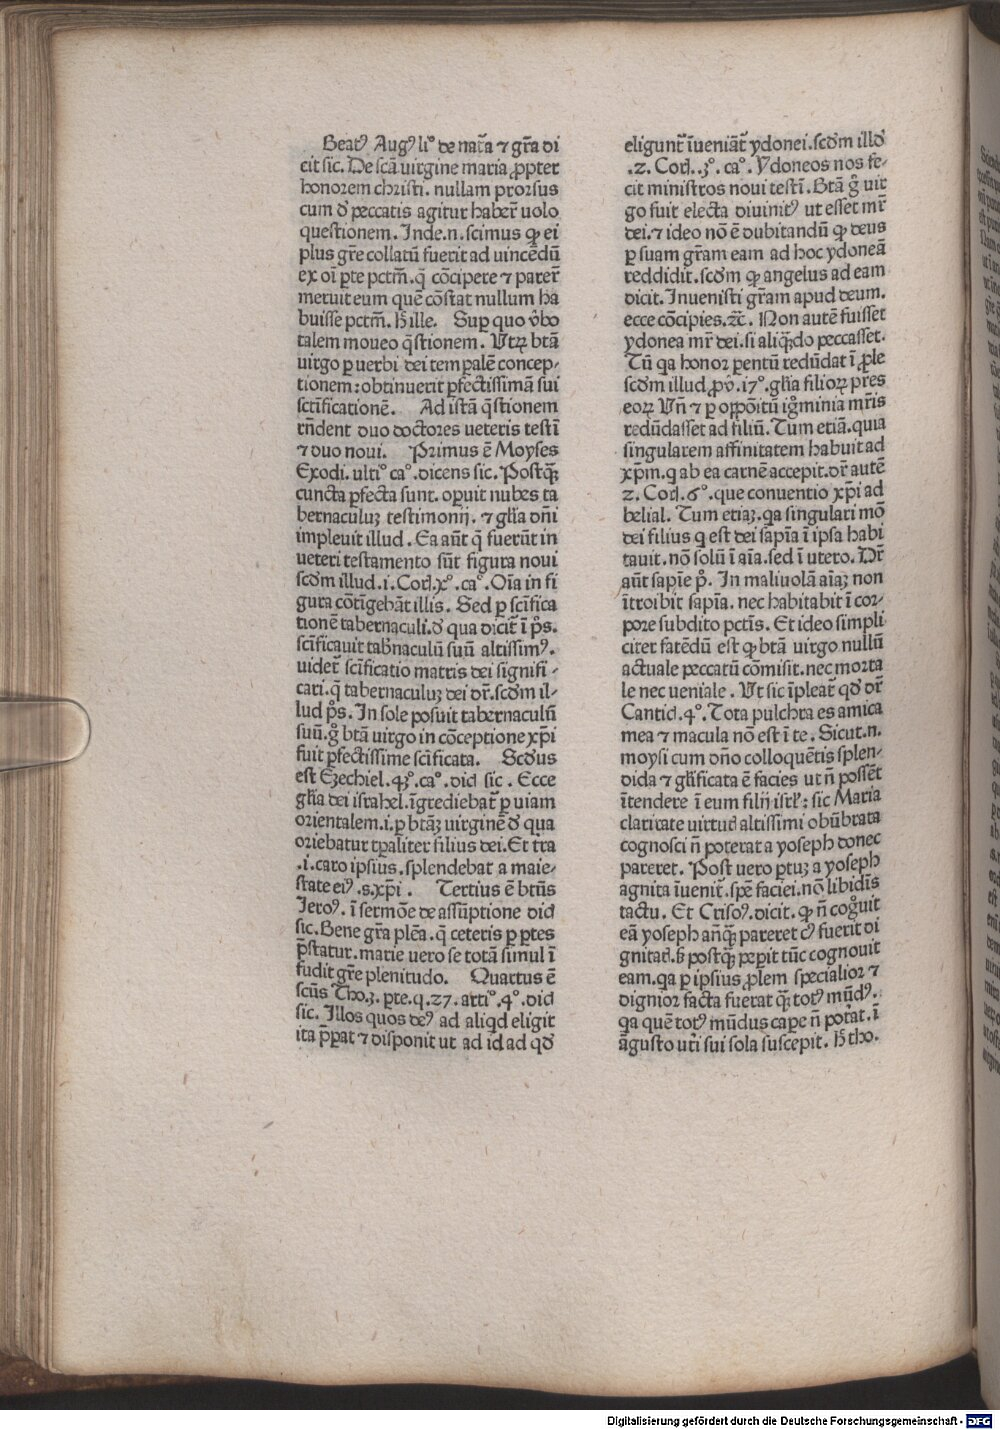 Beatꝰ Augꝰ li° de nat̄a ⁊ gr̄a di
cit sic. De scā uirgine maria ꝓpter
honorem christi. nullam prorsus
cum d̓ peccatis agitur haber̄ uolo
questionem. Inde .n. scimus ꝙ ei
plus gr̄e collatū fuerit ad uincēdū
ex oī ꝑte pctm̄. q̄ cōcipere ⁊ parer̄
meruit eum quē cōstat nullum ha
buisse pctm̄. H̄ ille. Suꝑ quo v̓bo
talem moueo q̄stionem. Utꝝ btā
uirgo ꝑ uerbi dei temꝑalē concep-
tionem: obtinuerit ꝑfectissimā sui
sctīficationē. Ad istā q̄stionem
rn̄dent duo doctores ueteris testī
⁊ duo noui. Primus ē Moyses
Exodi. ulti° ca°. dicens sic. Postqꝫ
cuncta ꝑfecta sunt. oꝑuit nubes ta
bernaculuꝫ testimonij. ⁊ glīa dn̄i
impleuit illud. Ea aūt q̄ fuerūt in
ueteri testamento sūt figura noui
scd̄m illud .i. Corꝭ. x°. ca°. Oīa in fi
gura cōtīgebāt illis. Sed ꝑ scīfica
tionē tabernaculi. d̓ qua dicit̄ ī p̄s.
scīficauit tab̓naculū suū altissimꝰ.
uidet̄ scīficatio matris dei signifi-
cari. q̄ tabernaculuꝫ dei dr̄. scd̄m il-
lud p̄s. In sole posuit tabernaculū
suū. g̊ btā uirgo in cōceptione xp̄i
fuit ꝑfectissime scīficata. Scd̄us
est Ezechiel. 4ꝫ°. ca°. dicꝭ sic. Ecce
glīa dei israhel. īgrediebat̄ ꝑ uiam
orientalem .i. ꝑ btāꝫ uirginē d̓ qua
oriebatur tꝑaliter filius dei. Et tra
.i. caro ipsius. splendebat a maie-
state eiꝰ .s. xp̄i. Tertius ē btūs
Jeroꝰ. ī sermōe de assūptione dicꝭ
sic. Bene gr̄a plēa. q̄ ceteris ꝑ ꝑtes
p̄statur. marie uero se totā simul ī
fudit gr̄e plenitudo. Quartus ē
scūs Tho. 3. ꝑte. q. 27. arti°. 4°. dicꝭ
sic. Illos quos deꝰ ad aliqd̄ eligit
ita p̄ꝑat ⁊ disponit ut ad id ad qd̄
eligunt̄ īueniāt̄ ydonei. scd̄m illd̄
.2. Corꝭ. .3°. ca°. Ydoneos nos fe-
cit ministros noui testī. Btā g̊ uir
go fuit electa diuinitꝰ ut esset mr̄
dei. ⁊ ideo nō ē dubitandū ꝙ deus
ꝑ suam gr̄am eam ad hoc ydoneā
reddidit. scd̄m ꝙ angelus ad eam
dicit. Inuenisti gr̄am apud deum.
ecce cōcipies. ⁊c̄. Non autē fuisset
ydonea mr̄ dei. si aliqꝫdo peccasset.
Tū qa honor ꝑentū redūdat ī ꝓle
scd̄m illud ꝓv̓. 17°. glīa filioꝝ pres
eoꝝ Un̄ ⁊ ꝑ oppōitū igͦminia mr̄is
redūdasset ad filiū. Tum etiā. quia
singularem affinitatem habuit ad
xp̄m. q ab ea carnē accepit. dr̄ autē
2. Corꝭ. 6°. que conuentio xp̄i ad
belial. Tum etiaꝫ. qa singulari mō
dei filius q est dei sapīa ī ipsa habi
tauit. nō solū ī aīa. sed ī utero. Dr̄
aūt sapīe p̊. In maliuolā aīaꝫ non
ītroibit sapīa. nec habitabit ī cor-
pore subdito pctīs. Et ideo simpli
citer fatēdū est ꝙ btā uirgo nullū
actuale peccatū cōmisit. nec morta
le nec ueniale. Ut sic īpleat̄ qd̄ dr̄
Cantic̄. 4°. Tota pulchra es amica
mea ⁊ macula nō est ī te. Sicut .n.
moysi cum dn̄o colloquētis splen-
dida ⁊ glīficata ē facies ut n̄ possēt
ītendere ī eum filij isrl̓: sic Maria
claritate uirtutꝭ altissimi obūbrata
cognosci n̄ poterat a yoseph donec
pareret. Post uero ꝑtuꝫ a yoseph
agnita īuenit̄. spē faciei. nō libidīs
tactu. Et Crisoꝰ. dicit. ꝙ n̄ cog̊uit
eā yoseph an̄qꝫ pareret cꝰ fuerit di
gnitatꝭ. ꝫ postqꝫ peꝑit tūc cognouit
eam. qa ꝑ ipsius ꝓlem specialior ⁊
dignior facta fuerat qꝫ totꝰ mūdꝰ.
qa quē totꝰ mūdus caꝑe n̄ poterat. ī
āgusto ut̓i sui sola suscepit. H̄ tho.
Digitalisierung gefördert durch die Deutsche Forschungsgemeinschaft - DFG